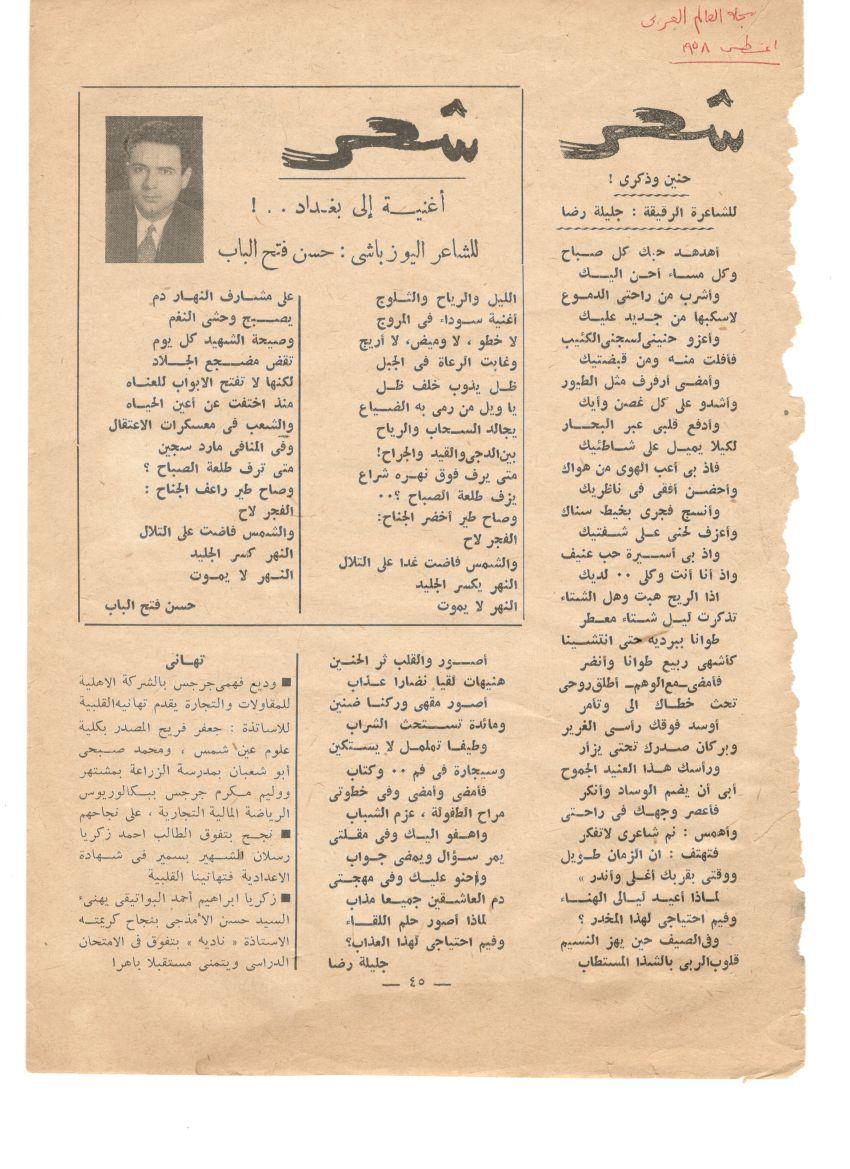 مجلة العالم العربى
اغسطس ١٩٥٨
شعر
حنين وذكرى !
للشاعرة الرقيقة : جليلة رضا
أهدهد حبك كل صباح
وكل مساء أحن اليك
وأشرب من راحتى الدموع
لاسكبها من جديد عليك
وأعزو حنينى لسجنى الكئيب
فأفلت منه ومن قبضتيك
وأمضى أرفرف مثل الطيور
وأشدو على كل غصن وأيك
وأدفع قلبى عبر البحار
لكيلا يميل على شاطئيك
فاذ بى أعب الهوى من هواك
وأحضن أفقى فى ناظريك
وأنسج فجرى بخيط سناك
وأعزف لحنى على شفتيك
واذ بى أسيرة حب عنيف
واذ أنا أنت وكلى ٠٠ لديك
اذا الريح هبت وهل الشتاء
تذكرت ليل شتاء معطر
طوانا ببرديه حتى انتشينا
كأشهى ربيع طوانا وأنضر
فأمضى ـ مع الوهم ـ أطلق روحى
تحث خطاك الى وتأمر
أوسد فوقك رأسى الغرير
وبركان صدرك تحتى يزأر
ورأسك هذا العنيد الجموح
أبى أن يضم الوساد وأنكر
فأعصر وجهك فى راحتى
وأهمس : نم شاعرى لاتفكر
فتهتف : ان الزمان طويل
ووقتى بقربك أغلى وأندر »
لماذا أعيد ليالى الهناء
وفيم احتياجى لهذا المخدر ؟
وفى الصيف حين يهز النسيم
قلوب الربى بالشذا المستطاب
أصور والقلب ثر الحنين
هنيهات لقيا نضارا عذاب
أصور مقهى وركنا ضنين
ومائدة تستحث الشراب
وطيفا تململ لا يستكين
وسيجارة فى فم ٠٠ وكتاب
فأمضى وأمضى وفى خطوتى
مراح الطفولة ، عزم الشباب
واهفو اليك وفى مقلتى
يمر سؤال ويمضى جواب
وأحنو عليك وفى مهجتى
دم العاشقين جميعا مذاب
لماذا أصور حلم اللقاء
وفيم احتياجى لهذا العذاب؟
جليلة رضا
شعر
أغنية إلى بغداد . . !
للشاعر اليوزباشى : حسن فتح الباب
الليل والرياح والثلوج
أغنية سوداء فى المروج
لا خطو ، لا وميض، لا أريج
وغابت الرعاة فى الجبل
ظل يذوب خلف ظل
يا ويل من رمى به الضياع
يجالد السحاب والرياح
بين الدجى والقيد والجراح!
متى يرف فوق نهره شراع
يزف طلعة الصباح ؟٠٠
وصاح طير أخضر الجناح:
الفجر لاح
والشمس فاضت غدا على التلال
النهر يكسر الجليد
النهر لا يموت
على مشارف النهار دم
يصبح وحشى النغم
وصيحة الشهيد كل يوم
تقض مضجع الجلاد
لكنها لا تفتح الابواب للعناه
منذ اختفت عن أعين الحياه
والشعب فى معسكرات الاعتقال
وفى المنافى مارد سجين
متى ترف طلعة الصباح ؟
وصاح طير راعف الجناح :
الفجر لاح
والشمس فاضت على التلال
النهر كسر الجليد
النهر لا يموت
حسن فتح الباب
تهانى
■ وديع فهمى جرجس بالشركة الاهلية
للمقاولات والتجارة يقدم تهانيه القلبية
للاساتذة : جعفر فريح المصدر بكلية
علوم عين شمس ، ومحمد صبحى
أبو شعبان بمدرسة الزراعة بمشتهر
ووليم مكرم جرجس ببكالوريوس
الرياضة المالية التجارية ، على نجاحهم
■ نجح بتفوق الطالب احمد زكريا
رسلان الشهير بسمير فى شهادة
الاعدادية فتهانينا القلبية
■ زكريا ابراهيم أحمد البواتيقى يهنىء
السيد حسن الأمذجى بنجاح كريمته
الاستاذة « ناديه » بتفوق فى الامتحان
الدراسى ويتمنى مستقبلا باهرا
— ٤٥ —